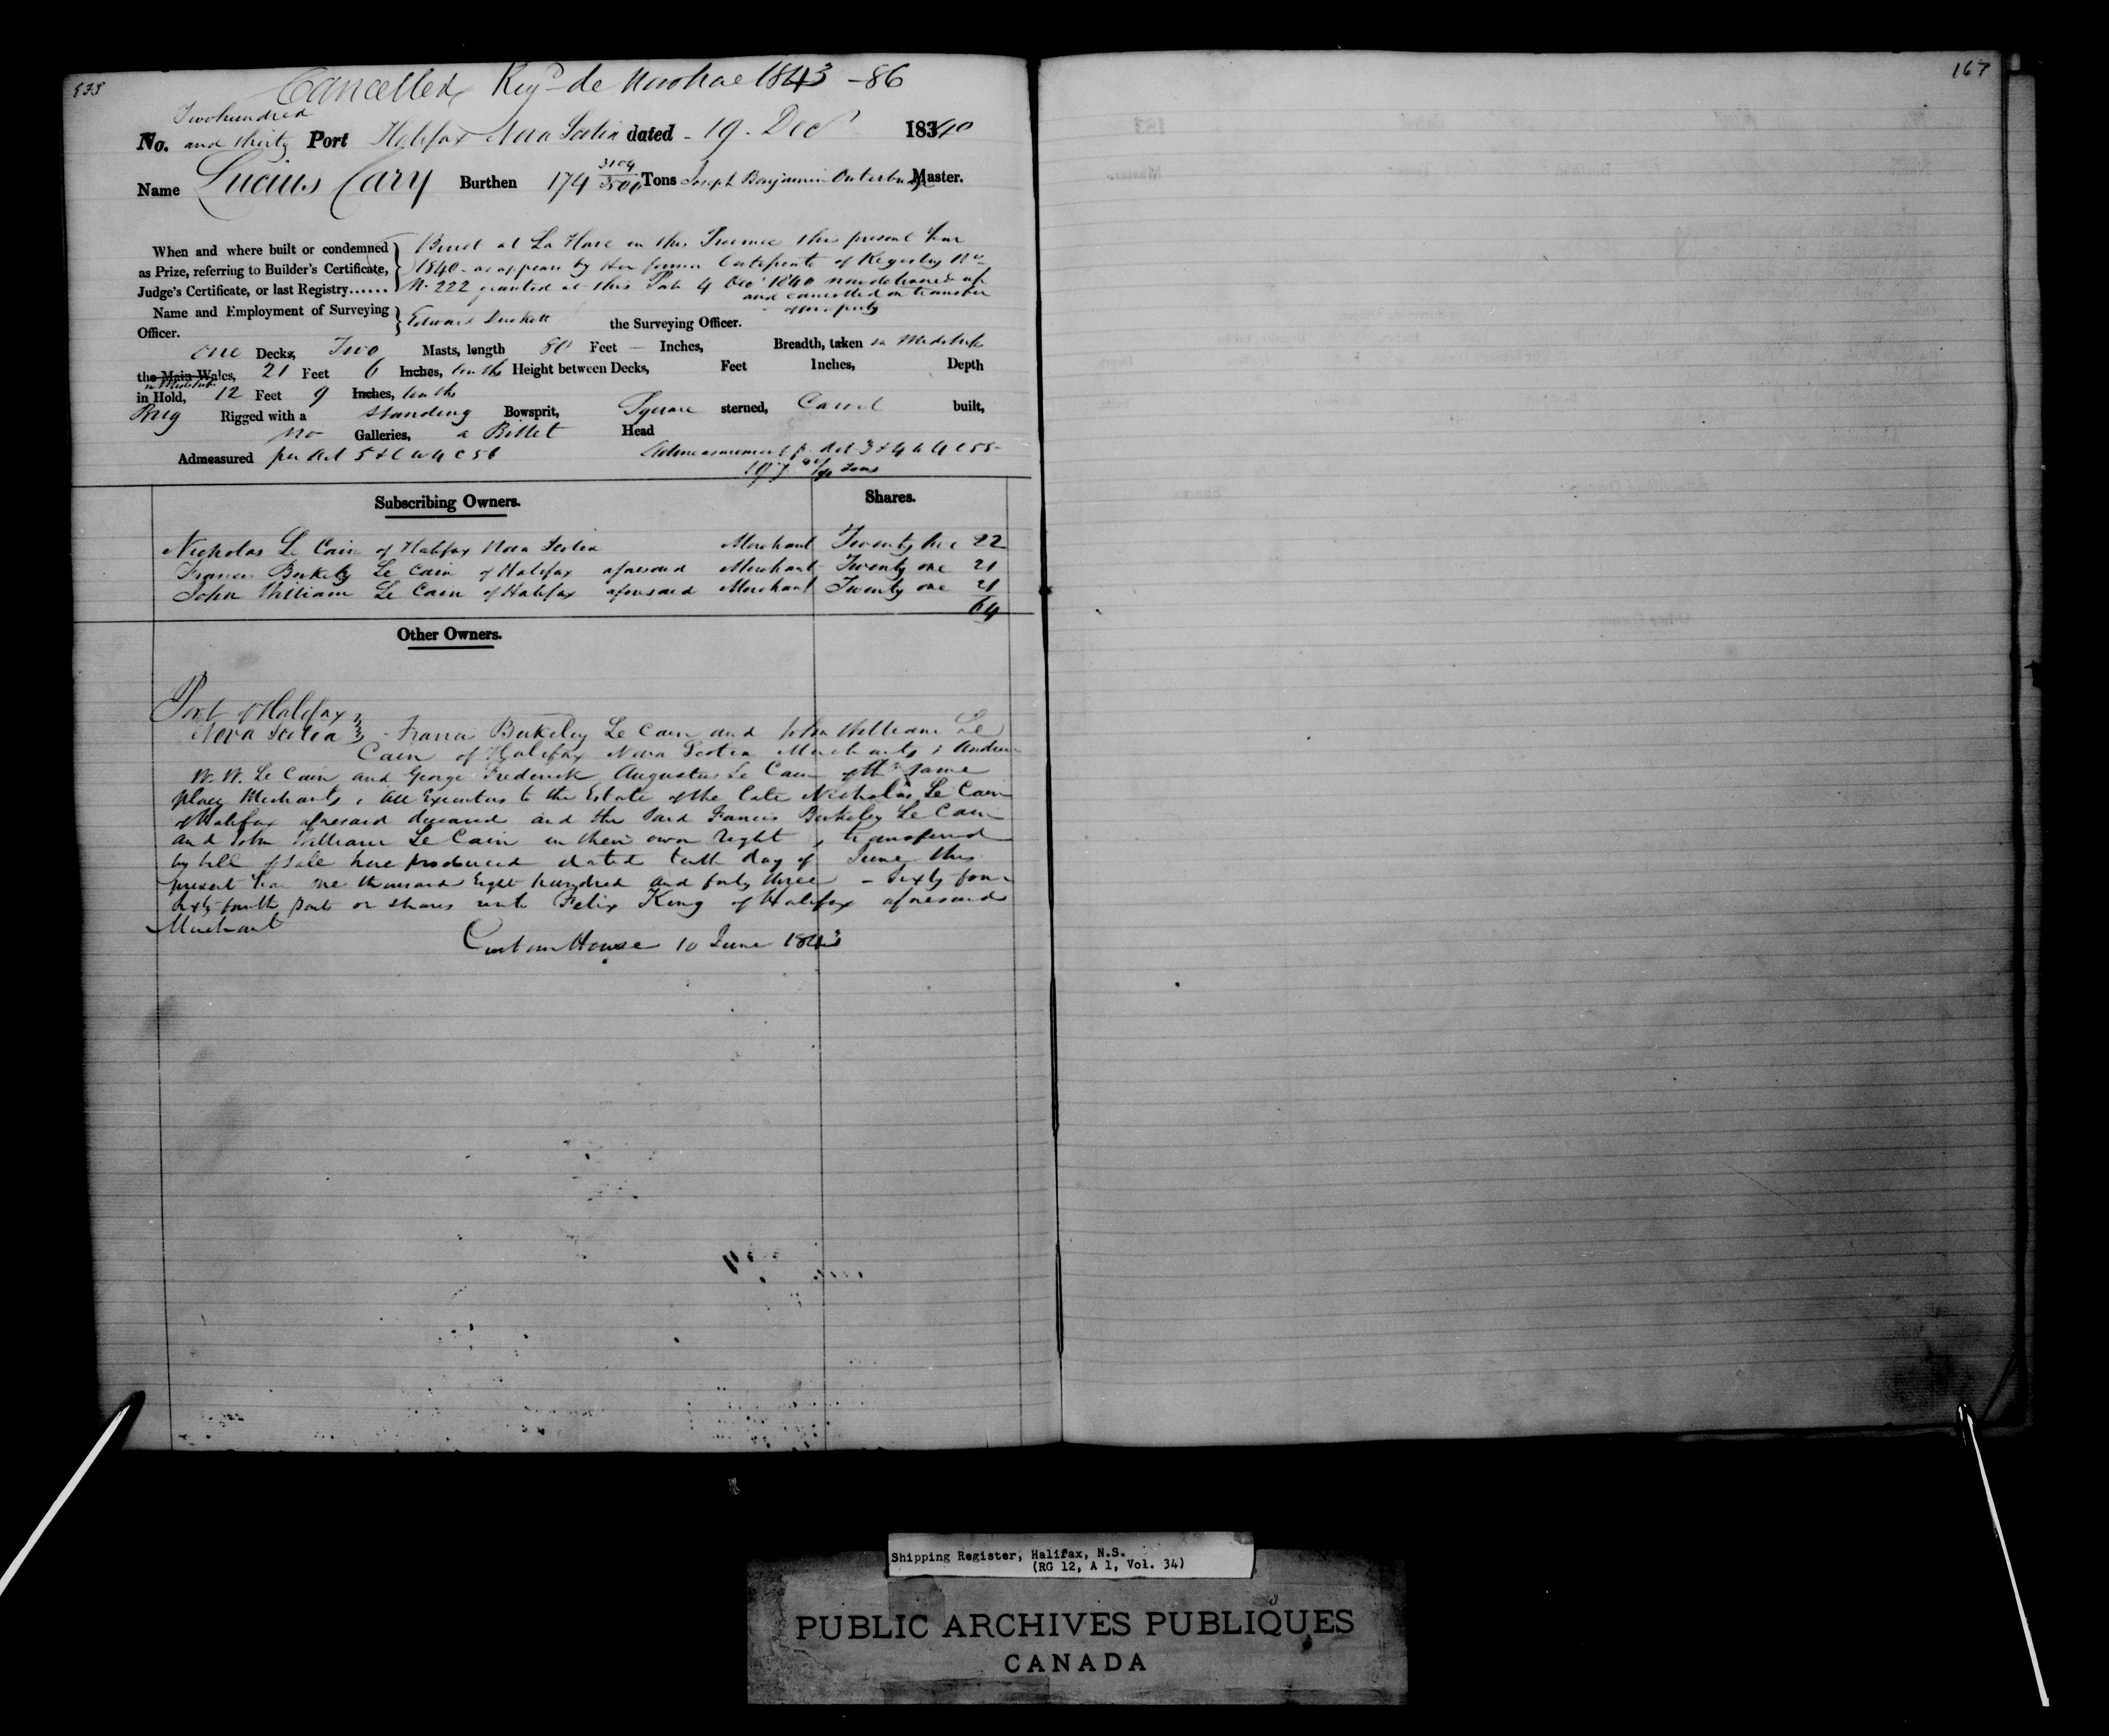 533
167
Cancelled Regd de Novo Hac 1843 - 86
Two hundred
No. and thirty Port Halifax Nova Scotia dated - 19 - Decr 18340
Name Lucius Cary Burthen 174 3109/3500 Tons Joseph Benjamin Outerbridge Master.
When and where built or condemned Built at La Have in this Province this present Year
as Prize, referring to Builder's Certificate, 1840 - as appears by Her former Certificate of Registry No
Judge's Certificate, or last Registry...... N. 222 granted at this Port 4 Decr 1840 now delivered up
and cancelled on transfer
of property
Name and Employment of Surveying
Officer. Edward Duckett the Surveying Officer.
one Decks, Two Masts, length 80 Feet - Inches, Breadth, taken in Midships
the Main Wales, 21 Feet 6 Inches, tenths Height between Decks, Feet Inches, Depth
in Midships
in Hold, 12 Feet 9 Inches, tenths
Brig Rigged with a Standing Bowsprit, Square sterned, Carvel built,
no Galleries, a Billet Head
Admeasured per Act 5 & 6 W 4 C 56 Admeasurement p. Act 3 & 4 W 4 C 55 -
Tons
Subscribing Owners. Shares.
Nicholas Le Cain of Halifax Nova Scotia Merchant Twenty two 22
Francis Berkely Le Cain of Halifax aforesaid Merchant Twenty one 21
John William Le Cain of Halifax aforesaid Merchant Twenty one 21
64
Other Owners.
Port of Halifax
Nova Scotia - Francis Berkeley Le Cain and John William Le
Cain of Halifax Nova Scotia Merchants ; Andrew
W. W. Le Cain and George Frederick Augustus Le Cain of the same
place Merchants, all Executors to the Estate of the late Nicholas Le Cain
of Halifax aforesaid deceased and the said Francis Berkeley Le Cain
and John William Le Cain in their own right, transferred
by bill of sale here produced dated tenth day of June this
present Year one thousand Eight hundred and forty three - Sixty four
sixty fourth parts or shares unto Felix King of Halifax aforesaid
Merchant
Custom House 10 June 1843
Shipping Register, Halifax, N.S.
(RG 12, A 1, Vol. 34)
PUBLIC ARCHIVES PUBLIQUES
CANADA